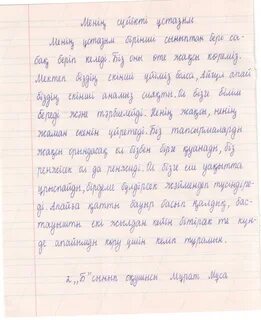 Менің сүйікті ұстазым
Менің ұстазым бірінші сыныптан бері са-
бақ беріп келеді. Біз оны өте жақсы көреміз.
Мектеп біздің екінші үйіміз болса, Айгүл апай
біздің екінші анамыз сияқты. Ол бізге білім
береді және тәрбиелейді. Ненің жақсы, ненің
жаман екенін үйретеді. Біз тапсырмаларды
жақсы орындасақ ол бізбен бірге қуанады, біз
ренжісек ол да ренжиді. Ол бізге еш уақытта
ұрыспайды, бірдеңе бүлдірсек жәймен түсіндіре-
ді. Апайға қатты бауыр басып қалдық, бас-
тауышты екі жылдан кейін бітірсек те күн-
де апайымды көру үшін келіп тұрамын.
2 "Б" сынып оқушысы Мұрат Мұса